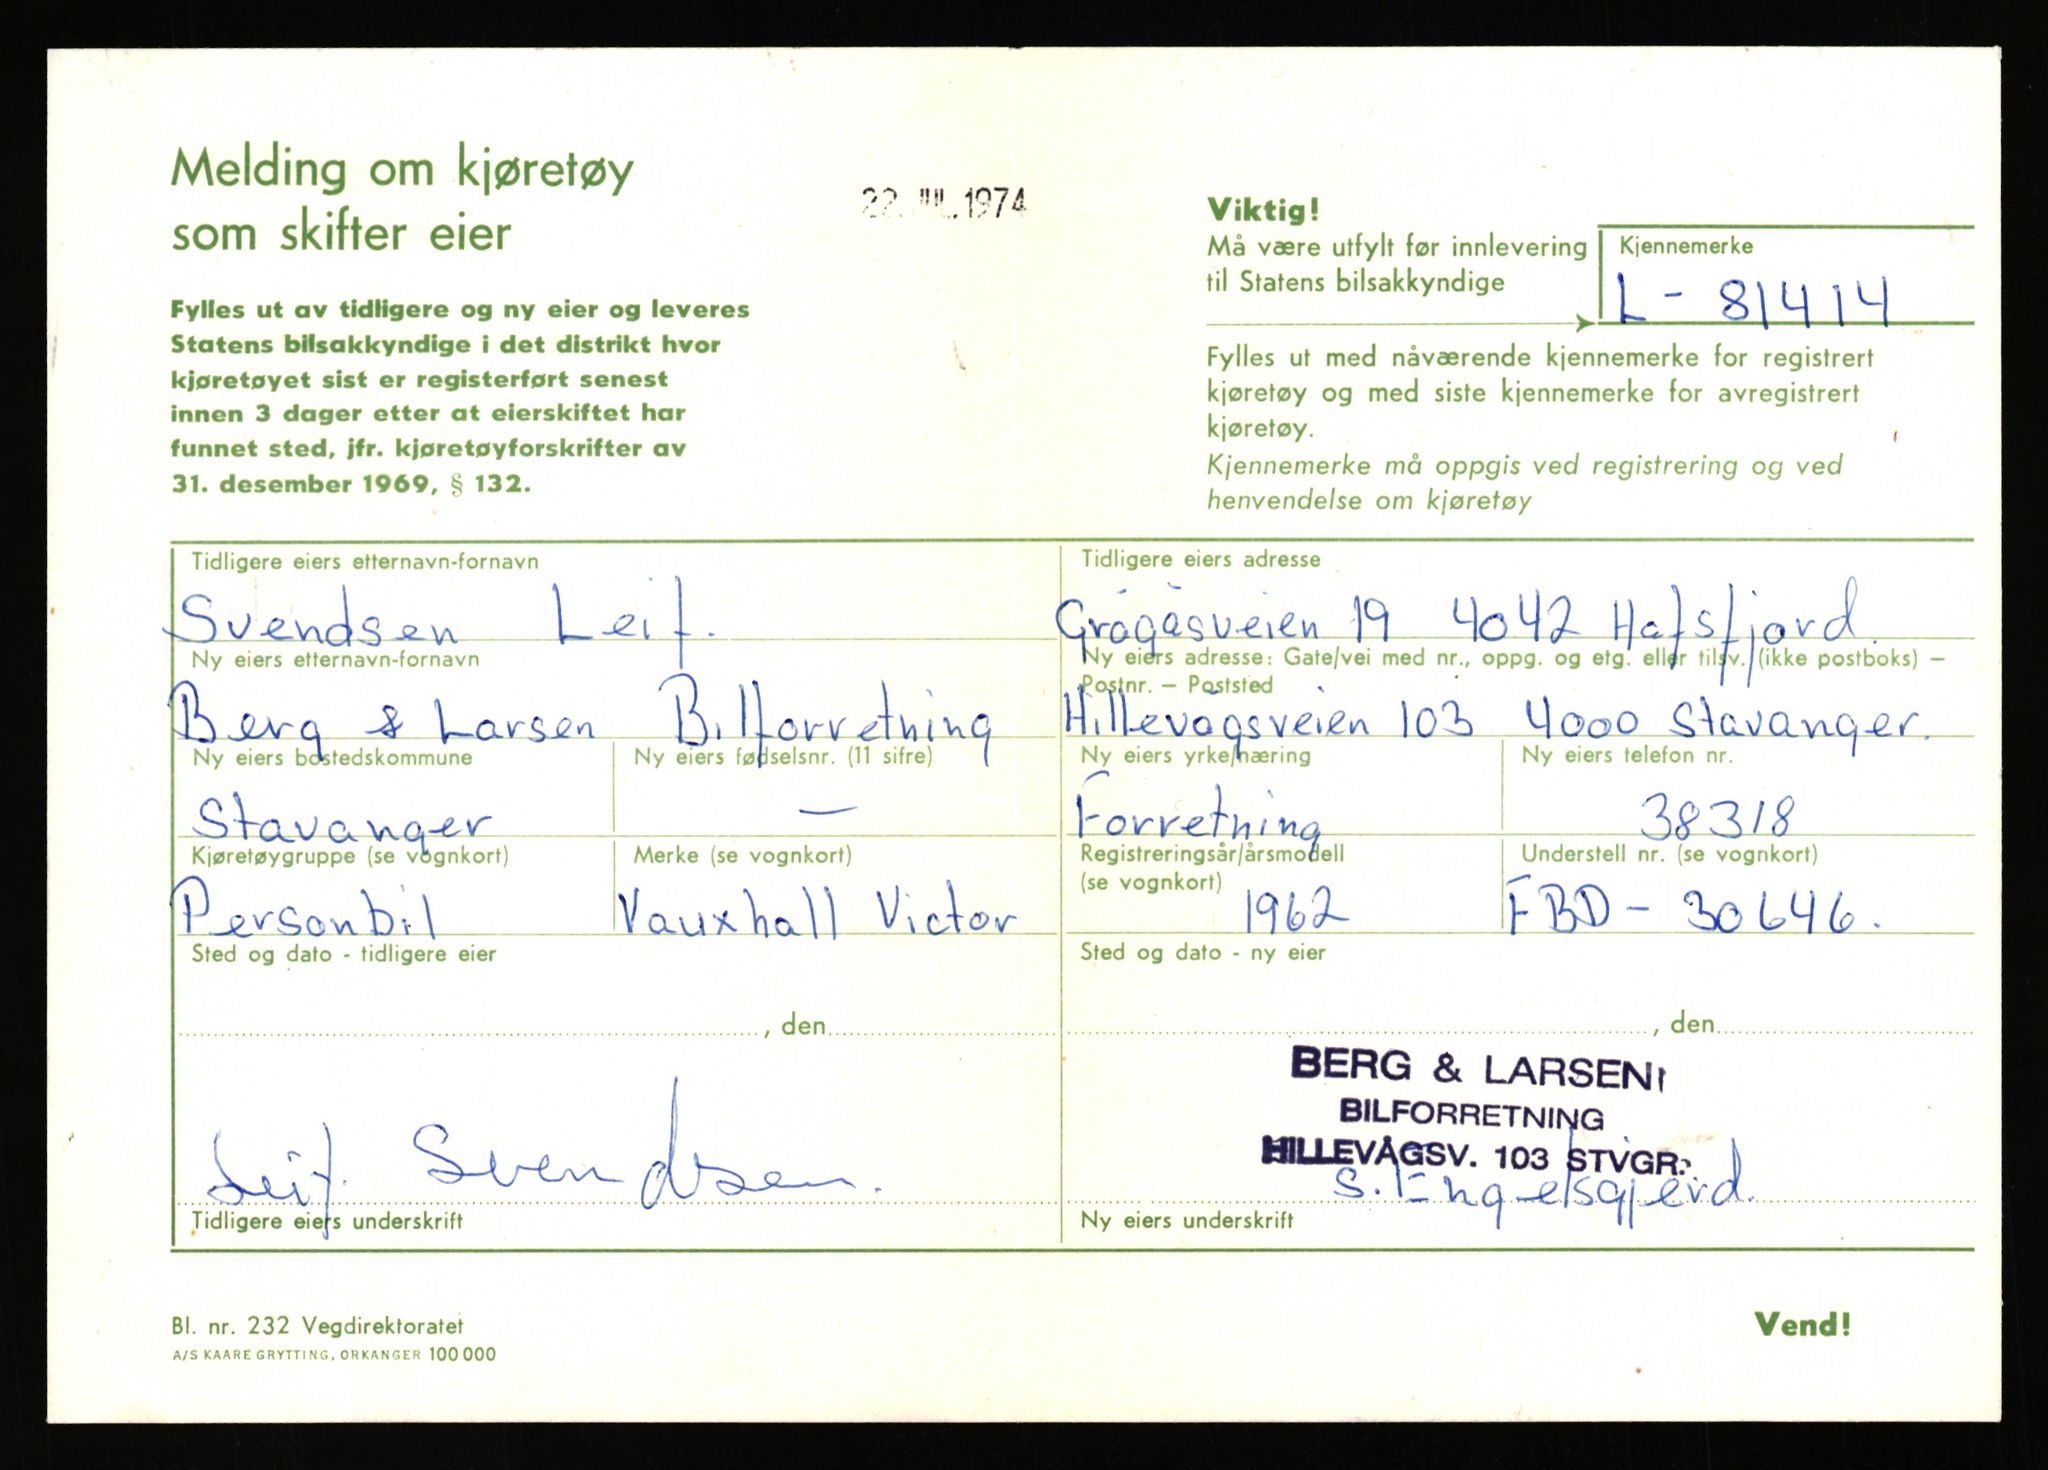 Melding om kjøretøy
som skifter eier
22. JUL. 1974
Fylles ut av tidligere og ny eier og leveres
Statens bilsakkyndige i det distrikt hvor
kjøretøyet sist er registerført senest
innen 3 dager etter at eierskiftet har
funnet sted, jfr. kjøretøyforskrifter av
31. desember 1969, § 132.
Viktig!
Må være utfylt før innlevering
til Statens bilsakkyndige
Kjennemerke
L - 81414
Fylles ut med nåværende kjennemerke for registrert
kjøretøy og med siste kjennemerke for avregistrert
kjøretøy.
Kjennemerke må oppgis ved registrering og ved
henvendelse om kjøretøy
Tidligere eiers etternavn-fornavn
Svendsen Leif.
Tidligere eiers adresse
Grågåsveien 19 4042 Hafsfjord.
Ny eiers etternavn-fornavn
Berg & Larsen Bilforretning
Ny eiers adresse: Gate/vei med nr., oppg. og etg. eller tilsv. (ikke postboks) –
Postnr. – Poststed
Hillevågsveien 103 4000 Stavanger.
Ny eiers bostedskommune
Stavanger
Ny eiers fødselsnr. (11 sifre)
—
Ny eiers yrke/næring
Forretning
Ny eiers telefon nr.
38318
Kjøretøygruppe (se vognkort)
Personbil
Merke (se vognkort)
Vauxhall Victor
Registreringsår/årsmodell
(se vognkort)
1962
Understell nr. (se vognkort)
FBD - 30646.
Sted og dato - tidligere eier
, den
Sted og dato - ny eier
, den
BERG & LARSEN
BILFORRETNING
HILLEVÅGSV. 103 STVGR.
Leif. Svendsen.
S. Engelsgjerd.
Tidligere eiers underskrift
Ny eiers underskrift
Bl. nr. 232 Vegdirektoratet
A/S KAARE GRYTTING, ORKANGER 100 000
Vend!